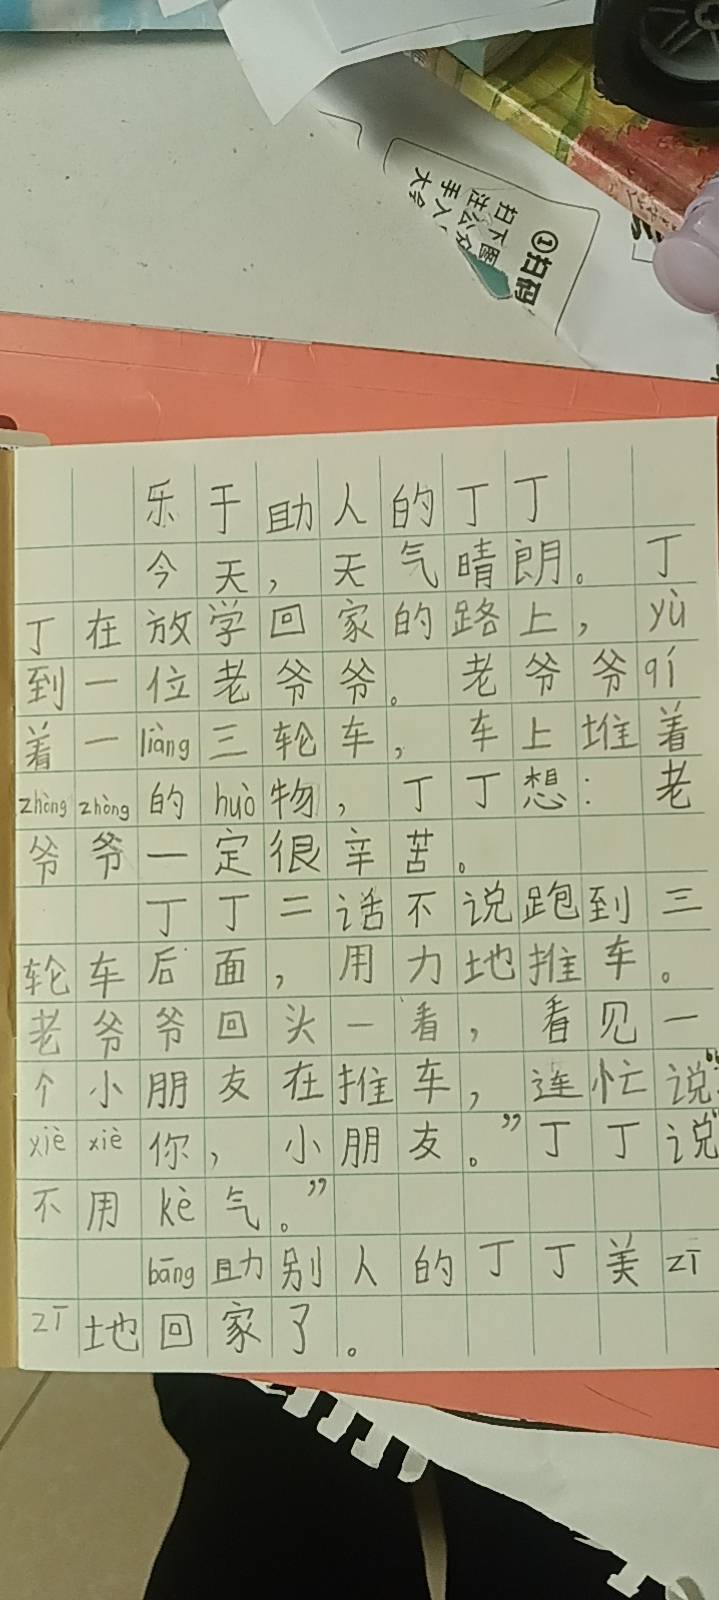 ①扫码
扫下图
注公
手人
大令
乐于助人的丁丁
今天，天气晴朗。丁
丁在放学回家的路上，yù
到一位老爷爷。老爷爷qí
着一liàng三轮车，车上堆着
zhòng zhòng的huò物，丁丁想：老
爷爷一定很辛苦。
丁丁二话不说跑到三
轮车后面，用力地推车。
老爷爷回头一看，看见一
个小朋友在推车，连忙说：“
xiè xiè你，小朋友。”丁丁说“
不用kè气。”
bāng助别人的丁丁美zī
zī地回家了。